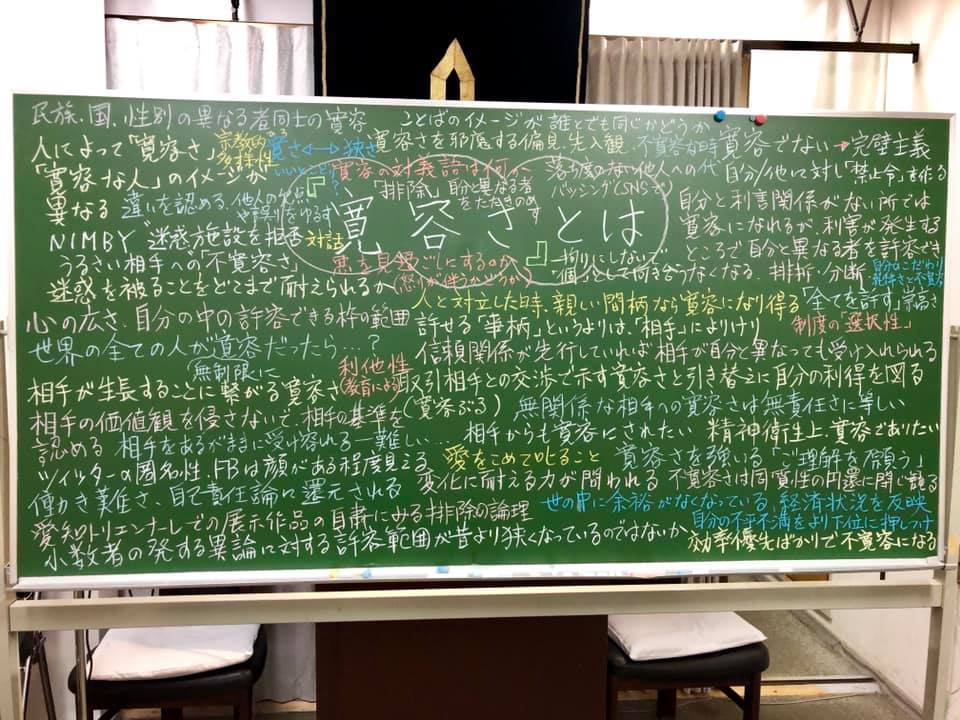 民族、国、性別の異なる者同士の寛容
ことばのイメージが誰とでも同じかどうか
人によって「寛容さ」
「寛容な人」のイメージが
異なる
宗教内
多様性
寛さ↔狭さ
いいとこどり?
寛容さを邪魔する偏見、先入観
不寛容な時
寛容でない→完璧主義
寛容の対義語は何か
「排除」自分と異なる者
をたたきのめす
落ち度のない他人への
バッシング(SNSで)
自分/他に対し「禁止令」を作る
違いを認める、他人の欠点
や誤りをゆるす
寛容さとは
自分と利害関係がない所では
寛容になれるが、利害が発生する
ところで自分と異なる者を許容でき
NIMBY 迷惑施設を拒否
対話
うるさい相手への「不寛容さ」
悪を見過ごしにするのか
(怒りが伴うかどうか)
一括りにしないで
個々分として向き合うなくなる、排斥、分断
自分のこだわり
迷惑を被ることをどこまで耐えられるか
人と対立した時、親しい間柄なら寛容になり得る
「全てを許す」崇高さ
心の広さ、自分の中の許容できる枠の範囲
許せる「事柄」というよりは、「相手」によりけり
制度の「選択性」
世界の全ての人が寛容だったら…?
信頼関係が先行していれば相手が自分と異なっても受け入れられる
無制限に
利他性
(教育による)
相手が生長することに繋がる寛容さ
取引相手との交渉で示す寛容さと引き替えに自分の利得を図る
相手の価値観を侵さないで、相手の基準を
認める
(寛容ぶる)
無関係な相手への寛容さは無責任さに等しい
相手をあるがままに受け容れる―難しい…
相手からも寛容にされたい
精神衛生上、寛容でありたい
ツイッターの匿名性、FBは顔がある程度見える
愛をこめて叱ること
寛容さを強いる「ご理解を願う」
働き難さ、自己責任論に還元される
変化に耐える力が問われる
不寛容さは同質性の円環に閉じ籠る
愛知トリエンナーレでの展示作品の自粛にみる排除の論理
世の中に余裕がなくなっている、経済状況を反映
自分の不平不満をより下位に押しつけ
少数者の発する異論に対する許容範囲が昔より狭くなっているのではないか
効率優先ばかりで不寛容になる